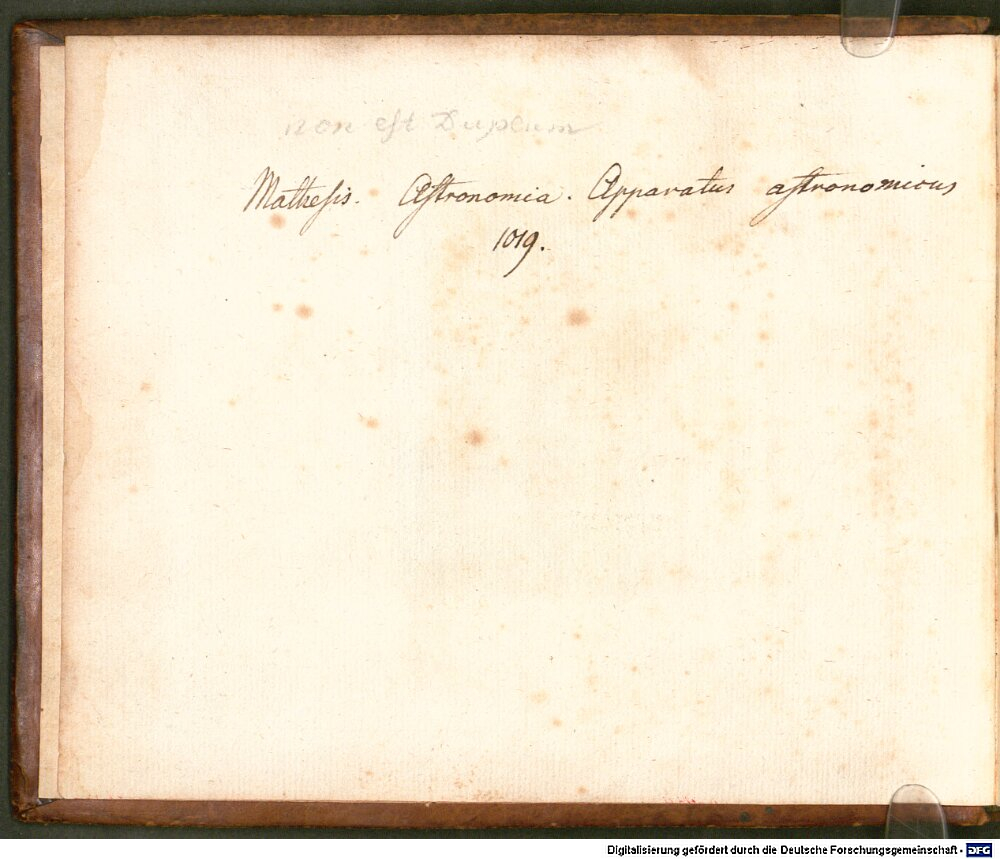 non est Duplum
Mathesis. Astronomia. Apparatus astronomicus
1019.
Digitalisierung gefördert durch die Deutsche Forschungsgemeinschaft - DFG